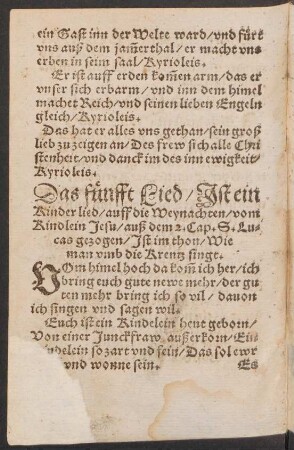 ein Gast inn der Welte ward/vnd fürt
vns auß dem jam̃erthal/er macht vns
erben in seim saal/Kyrioleis.
Er ist auff erden kom̃en arm/das er
vnser sich erbarm/vnd inn dem himel
machet Reich/vnd seinen lieben Engeln
gleich/Kyrioleis.
Das hat er alles vns gethan/sein groß
lieb zu zeigen an/Des frew sich alle Chri
stenheit/vnd danck im des inn ewigkeit/
Kyrioleis.
Das fünfft Lied/Ist ein
Kinder lied/auff die Weynachten/vom
Kindlein Jesu/auß dem 2. Cap. S. Lu-
cas gezogen/Ist im thon/Wie
man vmb die Krentz singt.
VOm himel hoch da kom̃ ich her/ich
bring euch gute newe mehr/der gu
ten mehr bring ich so vil/dauon
ich singen vnd sagen wil.
Euch ist ein Kindelein heut geborn/
Von einer Junckfraw außerkorn/Ein
ndelein so zart vnd fein/Das sol ewr
vnd wonne sein. Es